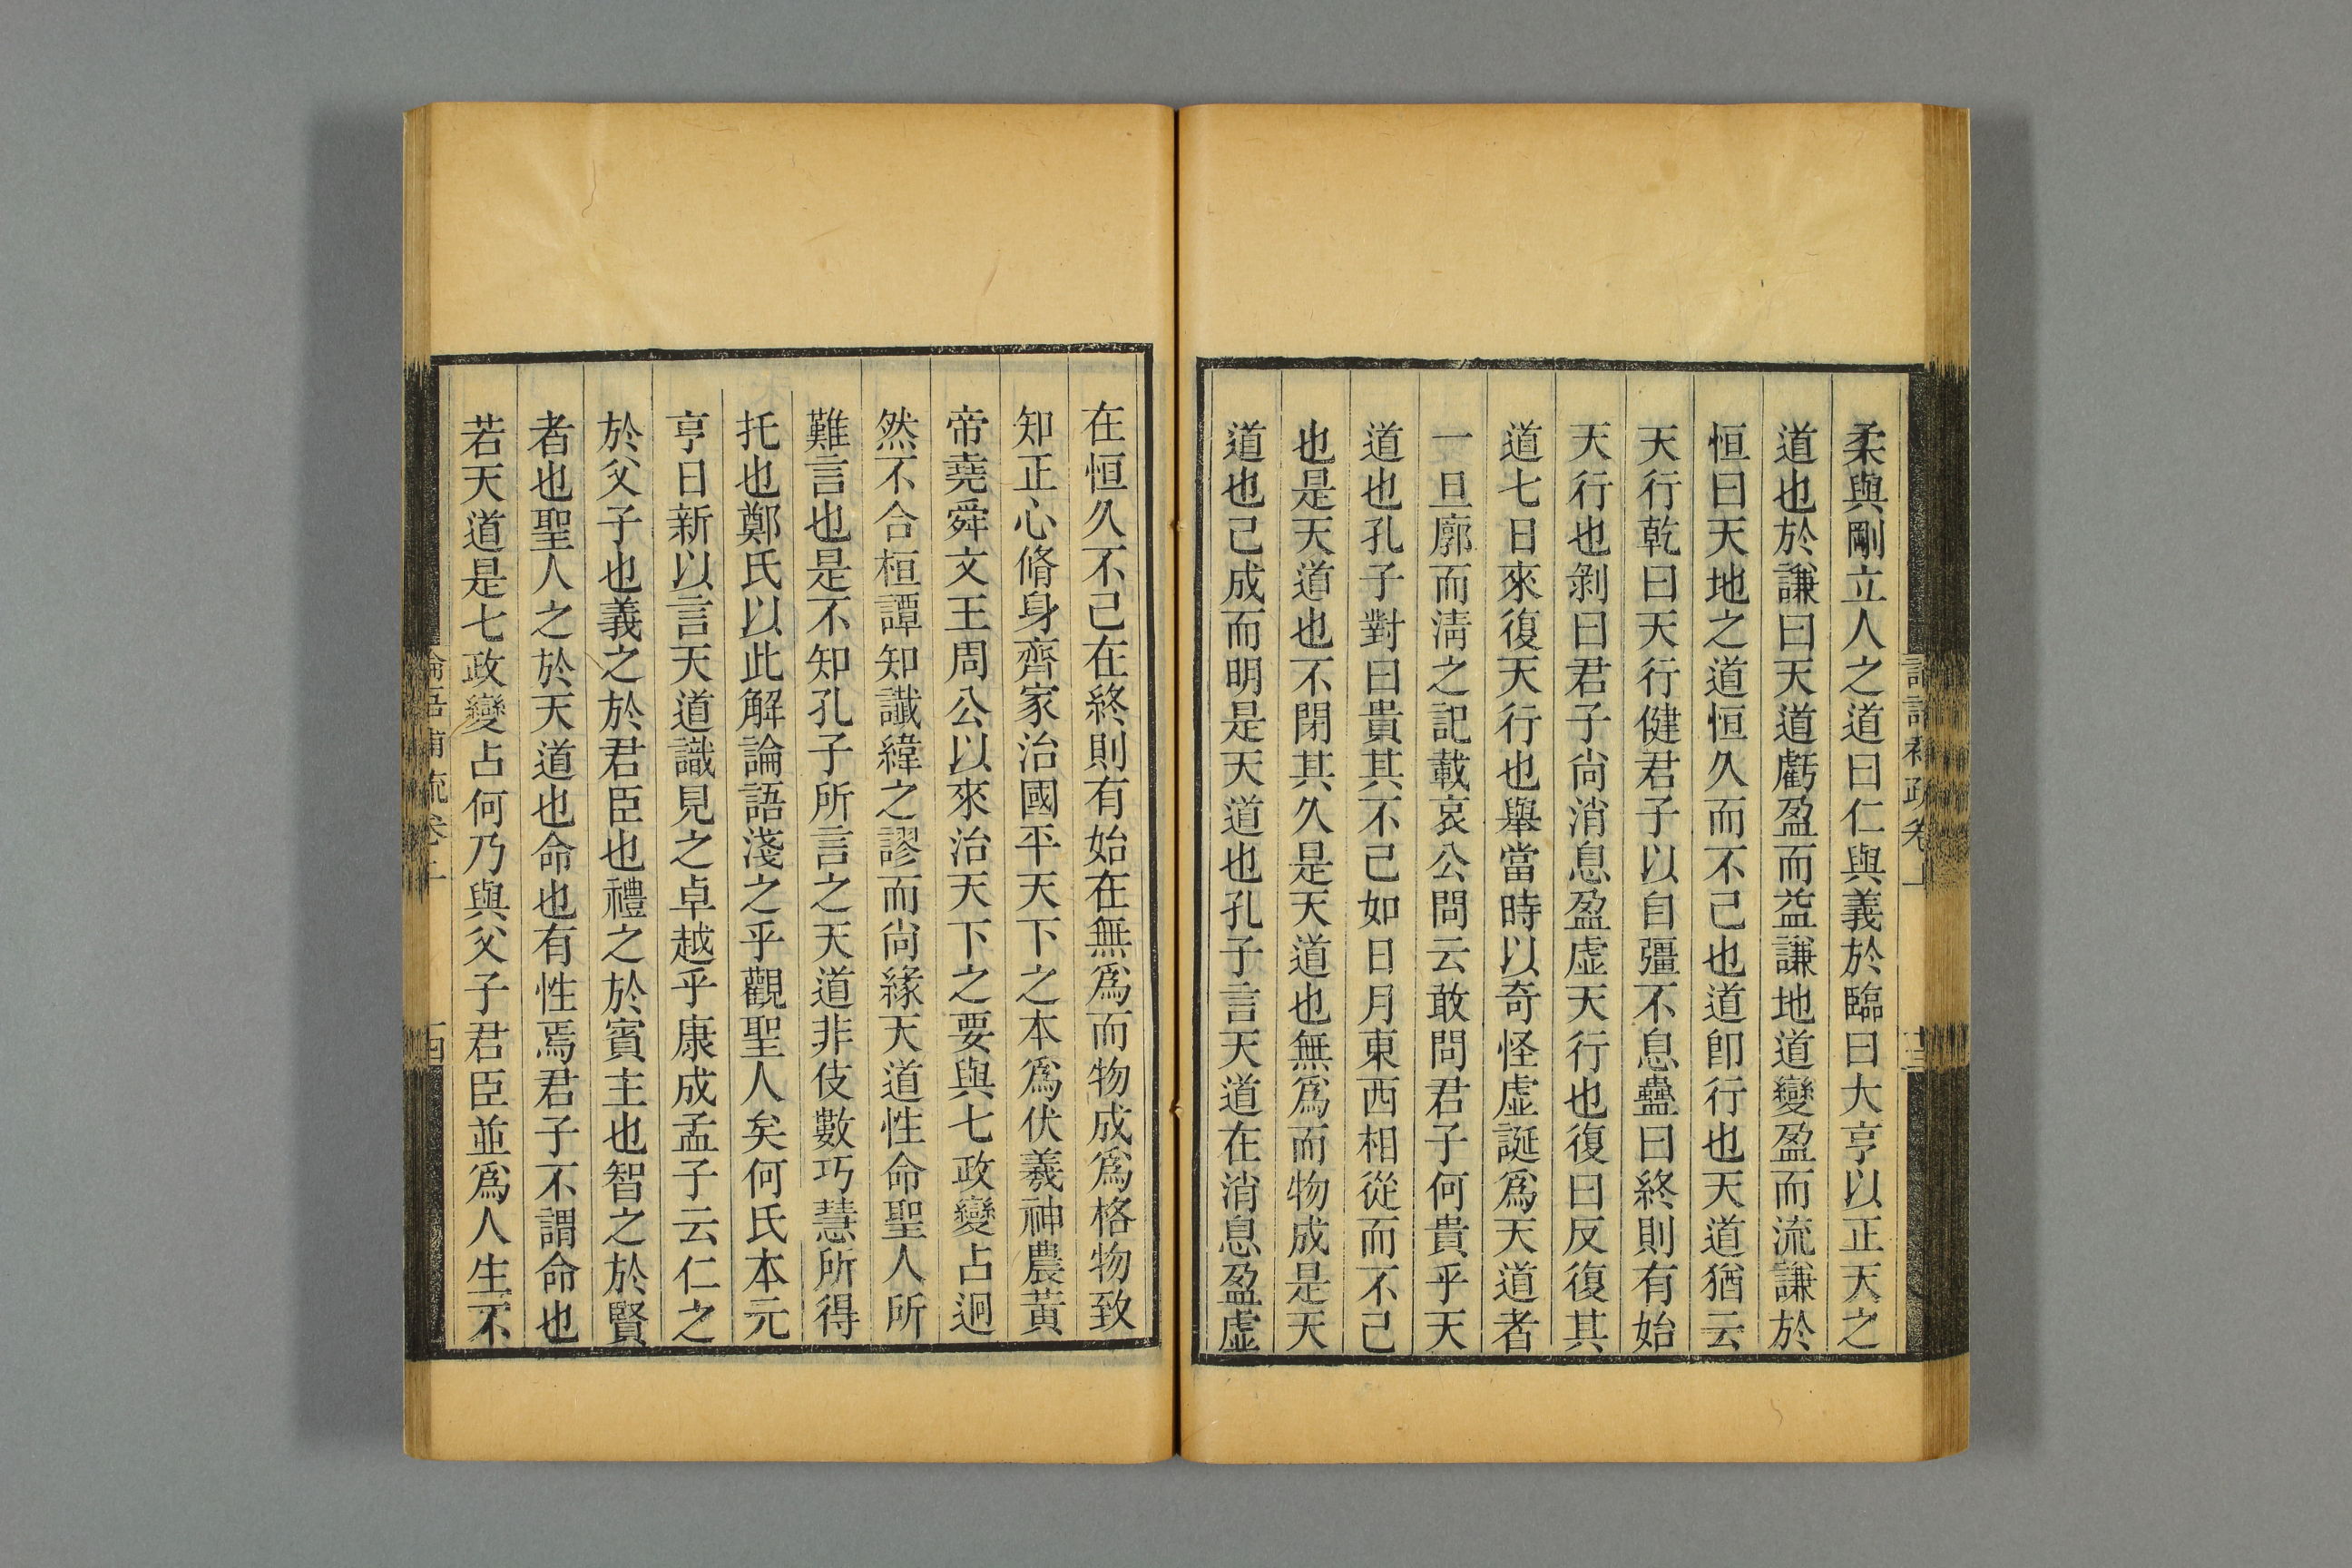 柔與剛立人之道曰仁與義於臨曰大亨以正天之
道也於謙曰天道虧盈而益謙地道變盈而流謙於
恒曰天地之道恒久而不已也道卽行也天道猶云
天行乾曰天行健君子以自彊不息蠱曰終則有始
天行也剝曰君子尙消息盈虛天行也復曰反復其
道七日來復天行也舉當時以奇怪虛誕爲天道者
一旦廓而淸之記載哀公問云敢問君子何貴乎天
道也孔子對曰貴其不已如日月東西相從而不已
也是天道也不閉其久是天道也無爲而物成是天
道也已成而明是天道也孔子言天道在消息盈虛
在恒久不已在終則有始在無爲而物成爲格物致
知正心脩身齊家治國平天下之本爲伏羲神農黃
帝堯舜文王周公以來治天下之要與七政變占迥
然不合桓譚知讖緯之謬而尙緣天道性命聖人所
難言也是不知孔子所言之天道非伎數巧慧所得
托也鄭氏以此解論語淺之乎觀聖人矣何氏本元
亨日新以言天道識見之卓越乎康成孟子云仁之
於父子也義之於君臣也禮之於賓主也智之於賢
者也聖人之於天道也命也有性焉君子不謂命也
若天道是七政變占何乃與父子君臣並爲人生不